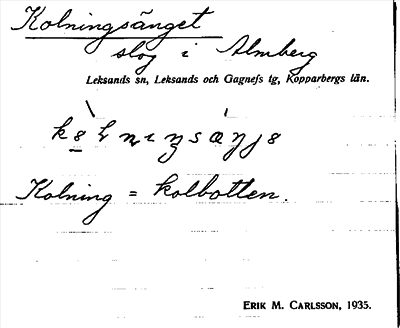 Kolningsänget
slog i Almberg
Leksands sn, Leksands och Gagnefs tg, Kopparbergs län.
Kolning = kolbotten.
ERIK M. CARLSSON, 1935.